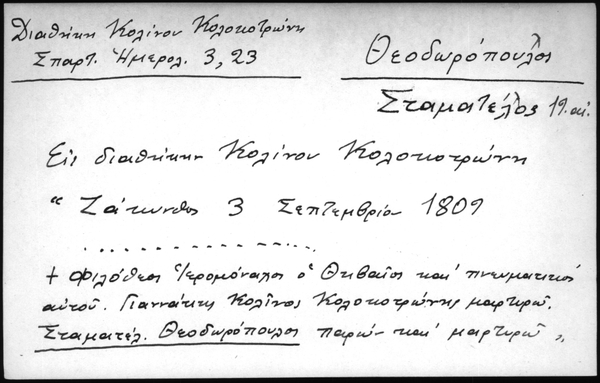 Διαθήκη Κολίνου Κολοκοτρώνη
Σπαρτ. Ἡμερολ. 3, 23
Θεοδωρόπουλος
Σταματέλος 19. αἰ.
Εἰς διαθήκην Κολίνου Κολοκοτρώνη
“ Ζάκυνθος 3 Σεπτεμβρίου 1809
. . . . . . . . . . . . . . . .
+ Φιλόθεος Ἱερομόναχος ὁ Θηβαῖος καὶ πνευματικός
αὐτοῦ. Γιαννάκης Κολῖνος Κολοκοτρώνης μαρτυρῶ.
Σταματέλ. Θεοδωρόπουλος παρών καὶ μαρτυρῶ „